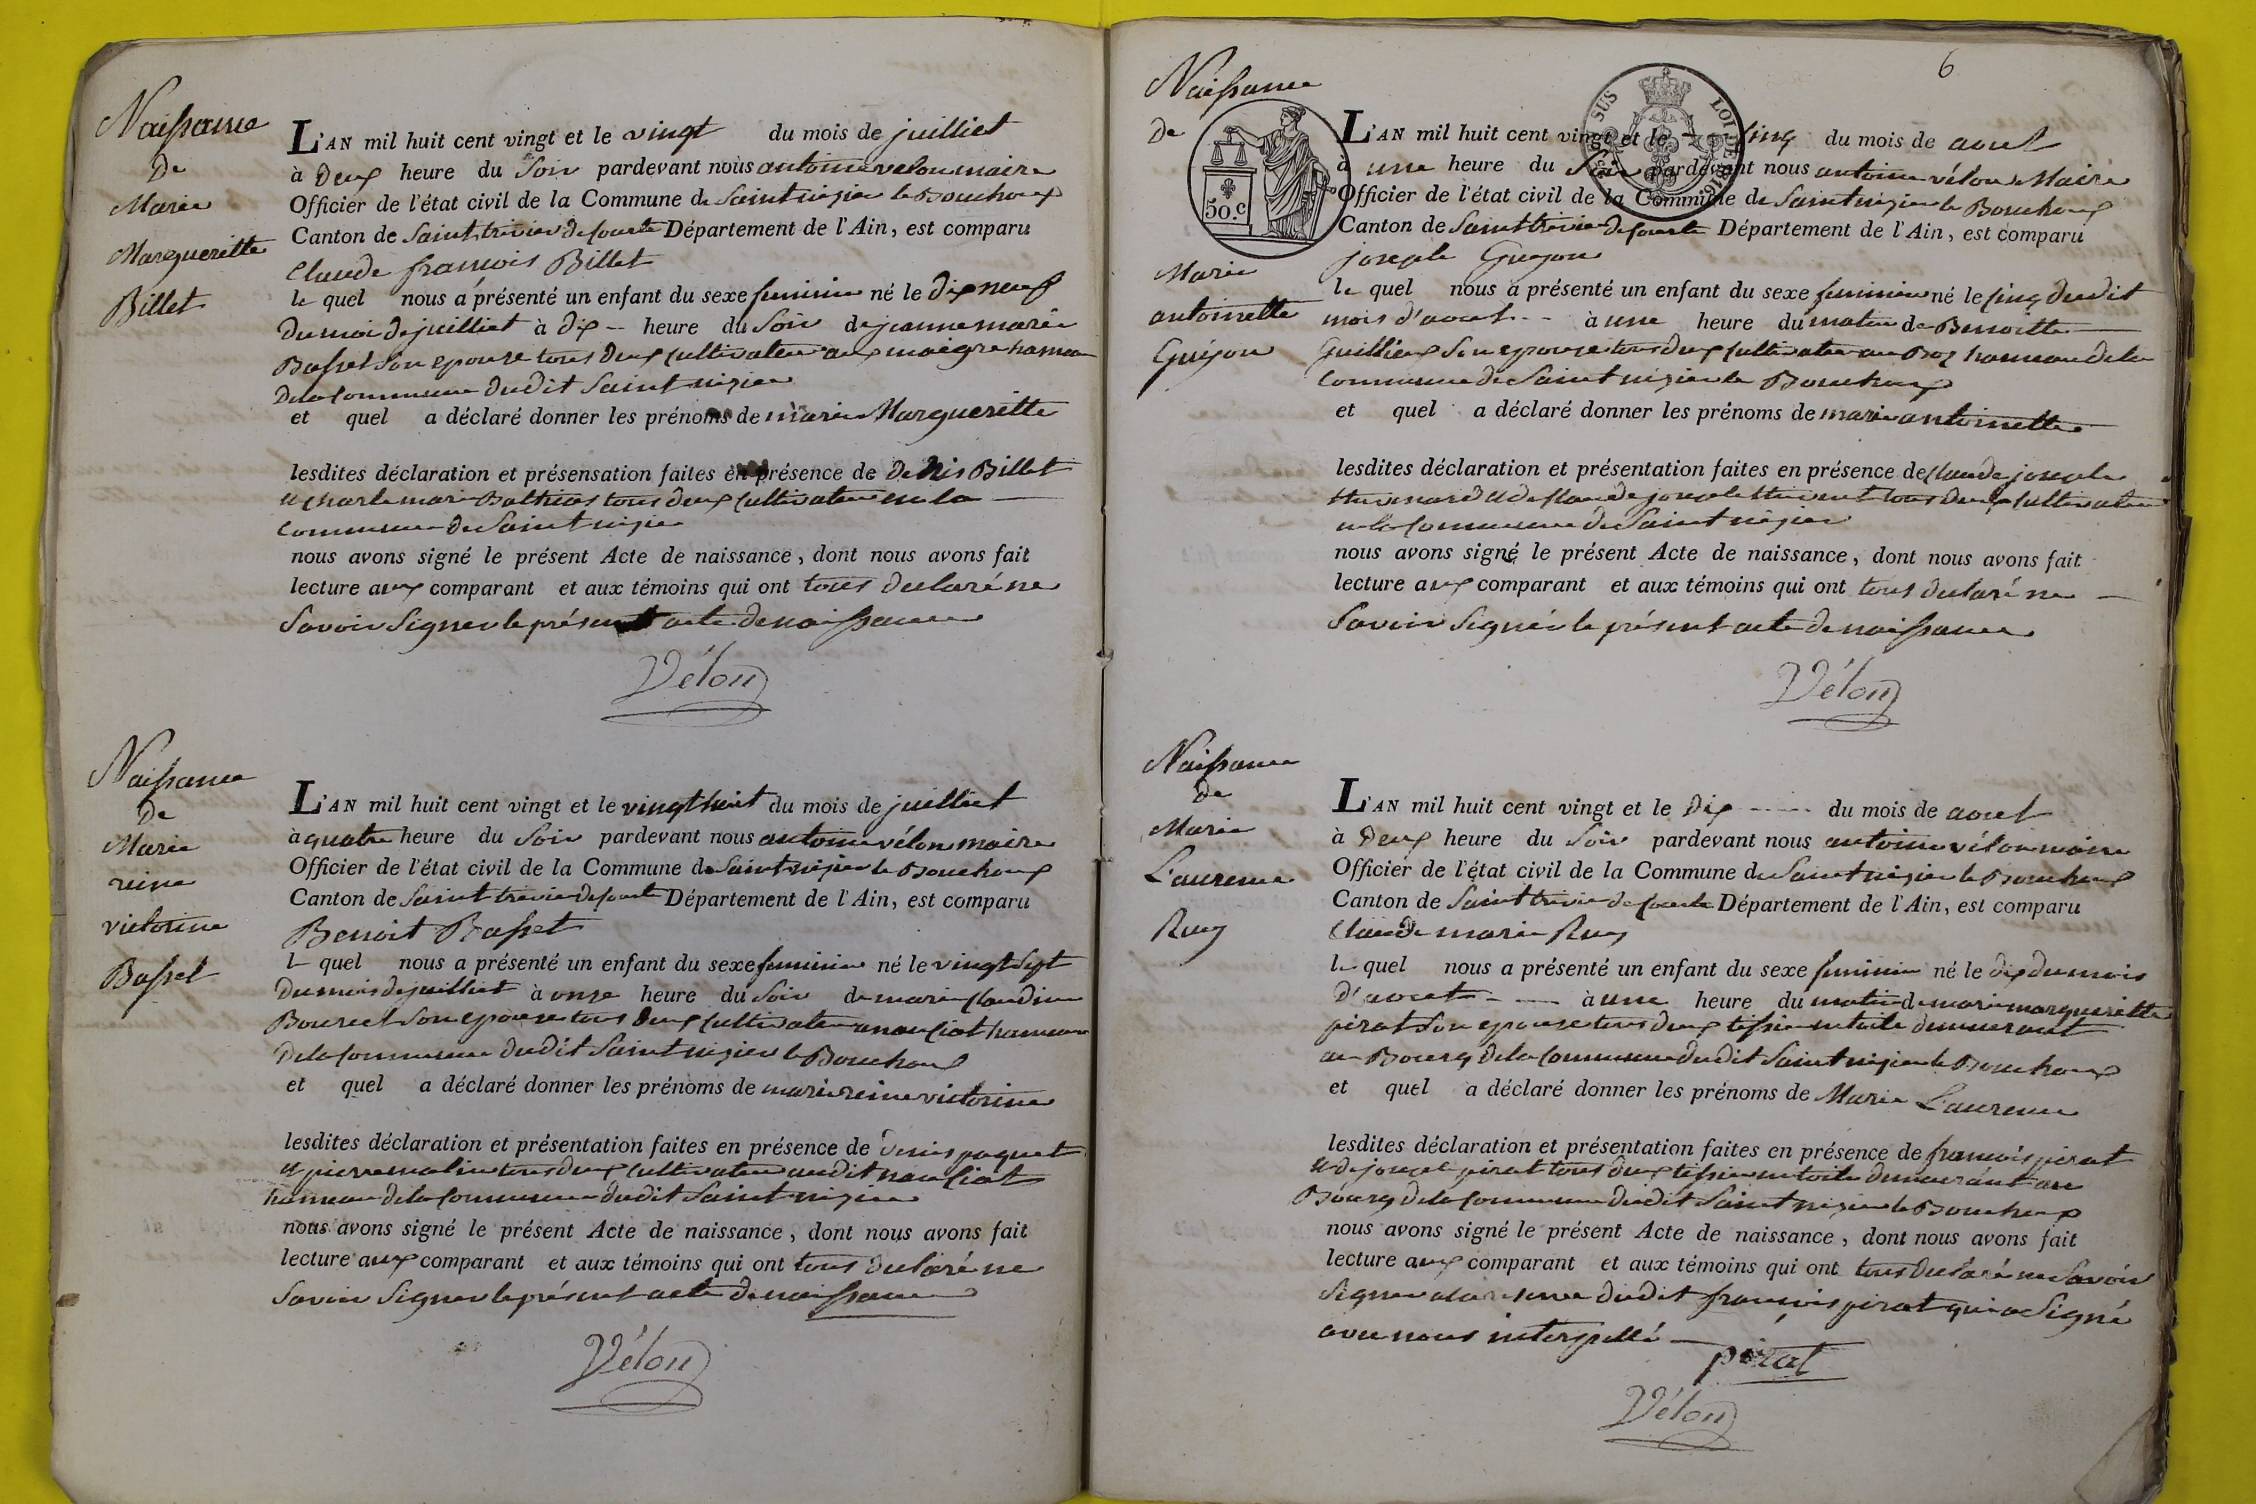 Naissance
de
Marie
Margueritte
Billet
L'AN mil huit cent vingt et le vingt du mois de juilliet
à Deux heure du Soir pardevant nous antoine vélon maire
Officier de l'état civil de la Commune de Saint nizier le Bouchoux
Canton de Saint trivier de Courte Département de l'Ain, est comparu
Claude francois Billet
le quel nous a présenté un enfant du sexe feminin né le dix neuf
Du moi de juilliet à dix heure du Soir de jeanne marie
Basset Son epouse tous deux Cultivateur aux maigre hameau
De la Commune dudit Saint nizier
et quel a déclaré donner les prénoms de marie Margueritte
lesdites déclaration et présensation faites en présence de Denis Billet
et Charle marie tous deux Cultivateur en la
Commune de Saint nizier
nous avons signé le présent Acte de naissance, dont nous avons fait
lecture aux comparant et aux témoins qui ont tous declaré ne
Savoir Signer le présent acte de naissance
Vélon
Naissance
de
Marie
reine
victorine
Basset
L'AN mil huit cent vingt et le vingt huit du mois de juilliet
à quatre heure du Soir pardevant nous antoine vélon maire
Officier de l'état civil de la Commune de Saint nizier le Bouchoux
Canton de Saint trivier de Courte Département de l'Ain, est comparu
Benoit Basset
le quel nous a présenté un enfant du sexe feminin né le vingt Sept
Du mois de juilliet à onze heure du Soir de marie Claudine
Son epouse tous deux Cultivateur a hameau
De la Commune dudit Saint nizier le Bouchoux
et quel a déclaré donner les prénoms de marie reine victorine
lesdites déclaration et présentation faites en présence de Denis paquet
et pierre tous deux Cultivateur audit
hameau de la Commune dudit Saint nizier
nous avons signé le présent Acte de naissance, dont nous avons fait
lecture aux comparant et aux témoins qui ont tous declaré ne
Savoir Signer le présent acte de naissance
Vélon
6
Naissance
de
50.c
SUS LOI DE 1816
Marie
antoinette
Guyon
L'AN mil huit cent vingt et le Cinq du mois de aout
à une heure du Soir pardevant nous antoine vélon Maire
Officier de l'état civil de la Commune de Saint nizier le Bouchoux
Canton de Saint trivier de Courte Département de l'Ain, est comparu
joseph Guyon
le quel nous a présenté un enfant du sexe feminin né le Cinq dudit
mois d'aout à une heure du matin de Benoitte
Son epouse tous deux Cultivateur au hameau de la
Commune de Saint nizier le Bouchoux
et quel a déclaré donner les prénoms de marie antoinette
lesdites déclaration et présentation faites en présence de Claude joseph
et de Claude joseph tous deux Cultivateur
en la Commune de Saint nizier
nous avons signé le présent Acte de naissance, dont nous avons fait
lecture aux comparant et aux témoins qui ont tous declaré ne
Savoir Signér le présent acte de naissance
Vélon
Naissance
de
Marie
Laurence
Ruy
L'AN mil huit cent vingt et le Dix du mois de aout
à Deux heure du Soir pardevant nous antoine vélon maire
Officier de l'état civil de la Commune de Saint nizier le Bouchoux
Canton de Saint trivier de Courte Département de l'Ain, est comparu
Claude marie Ruy
le quel nous a présenté un enfant du sexe feminin né le dix du mois
d'aout à une heure du matin de marie margueritte
pirat Son epouse tous deux tissier en toile demeurant
au Bourg de la Commune dudit Saint nizier le Bouchoux
et quel a déclaré donner les prénoms de Marie Laurence
lesdites déclaration et présentation faites en présence de francois pirat
et de joseph pirat tous deux tissier en toile demeurant au
Bourg de la Commune dudit Saint nizier le Bouchoux
nous avons signé le présent Acte de naissance, dont nous avons fait
lecture aux comparant et aux témoins qui ont tous declaré ne Savoir
Signer a la reserve dudit francois pirat qui a Signé
avec nous interpellé
pirat
Vélon